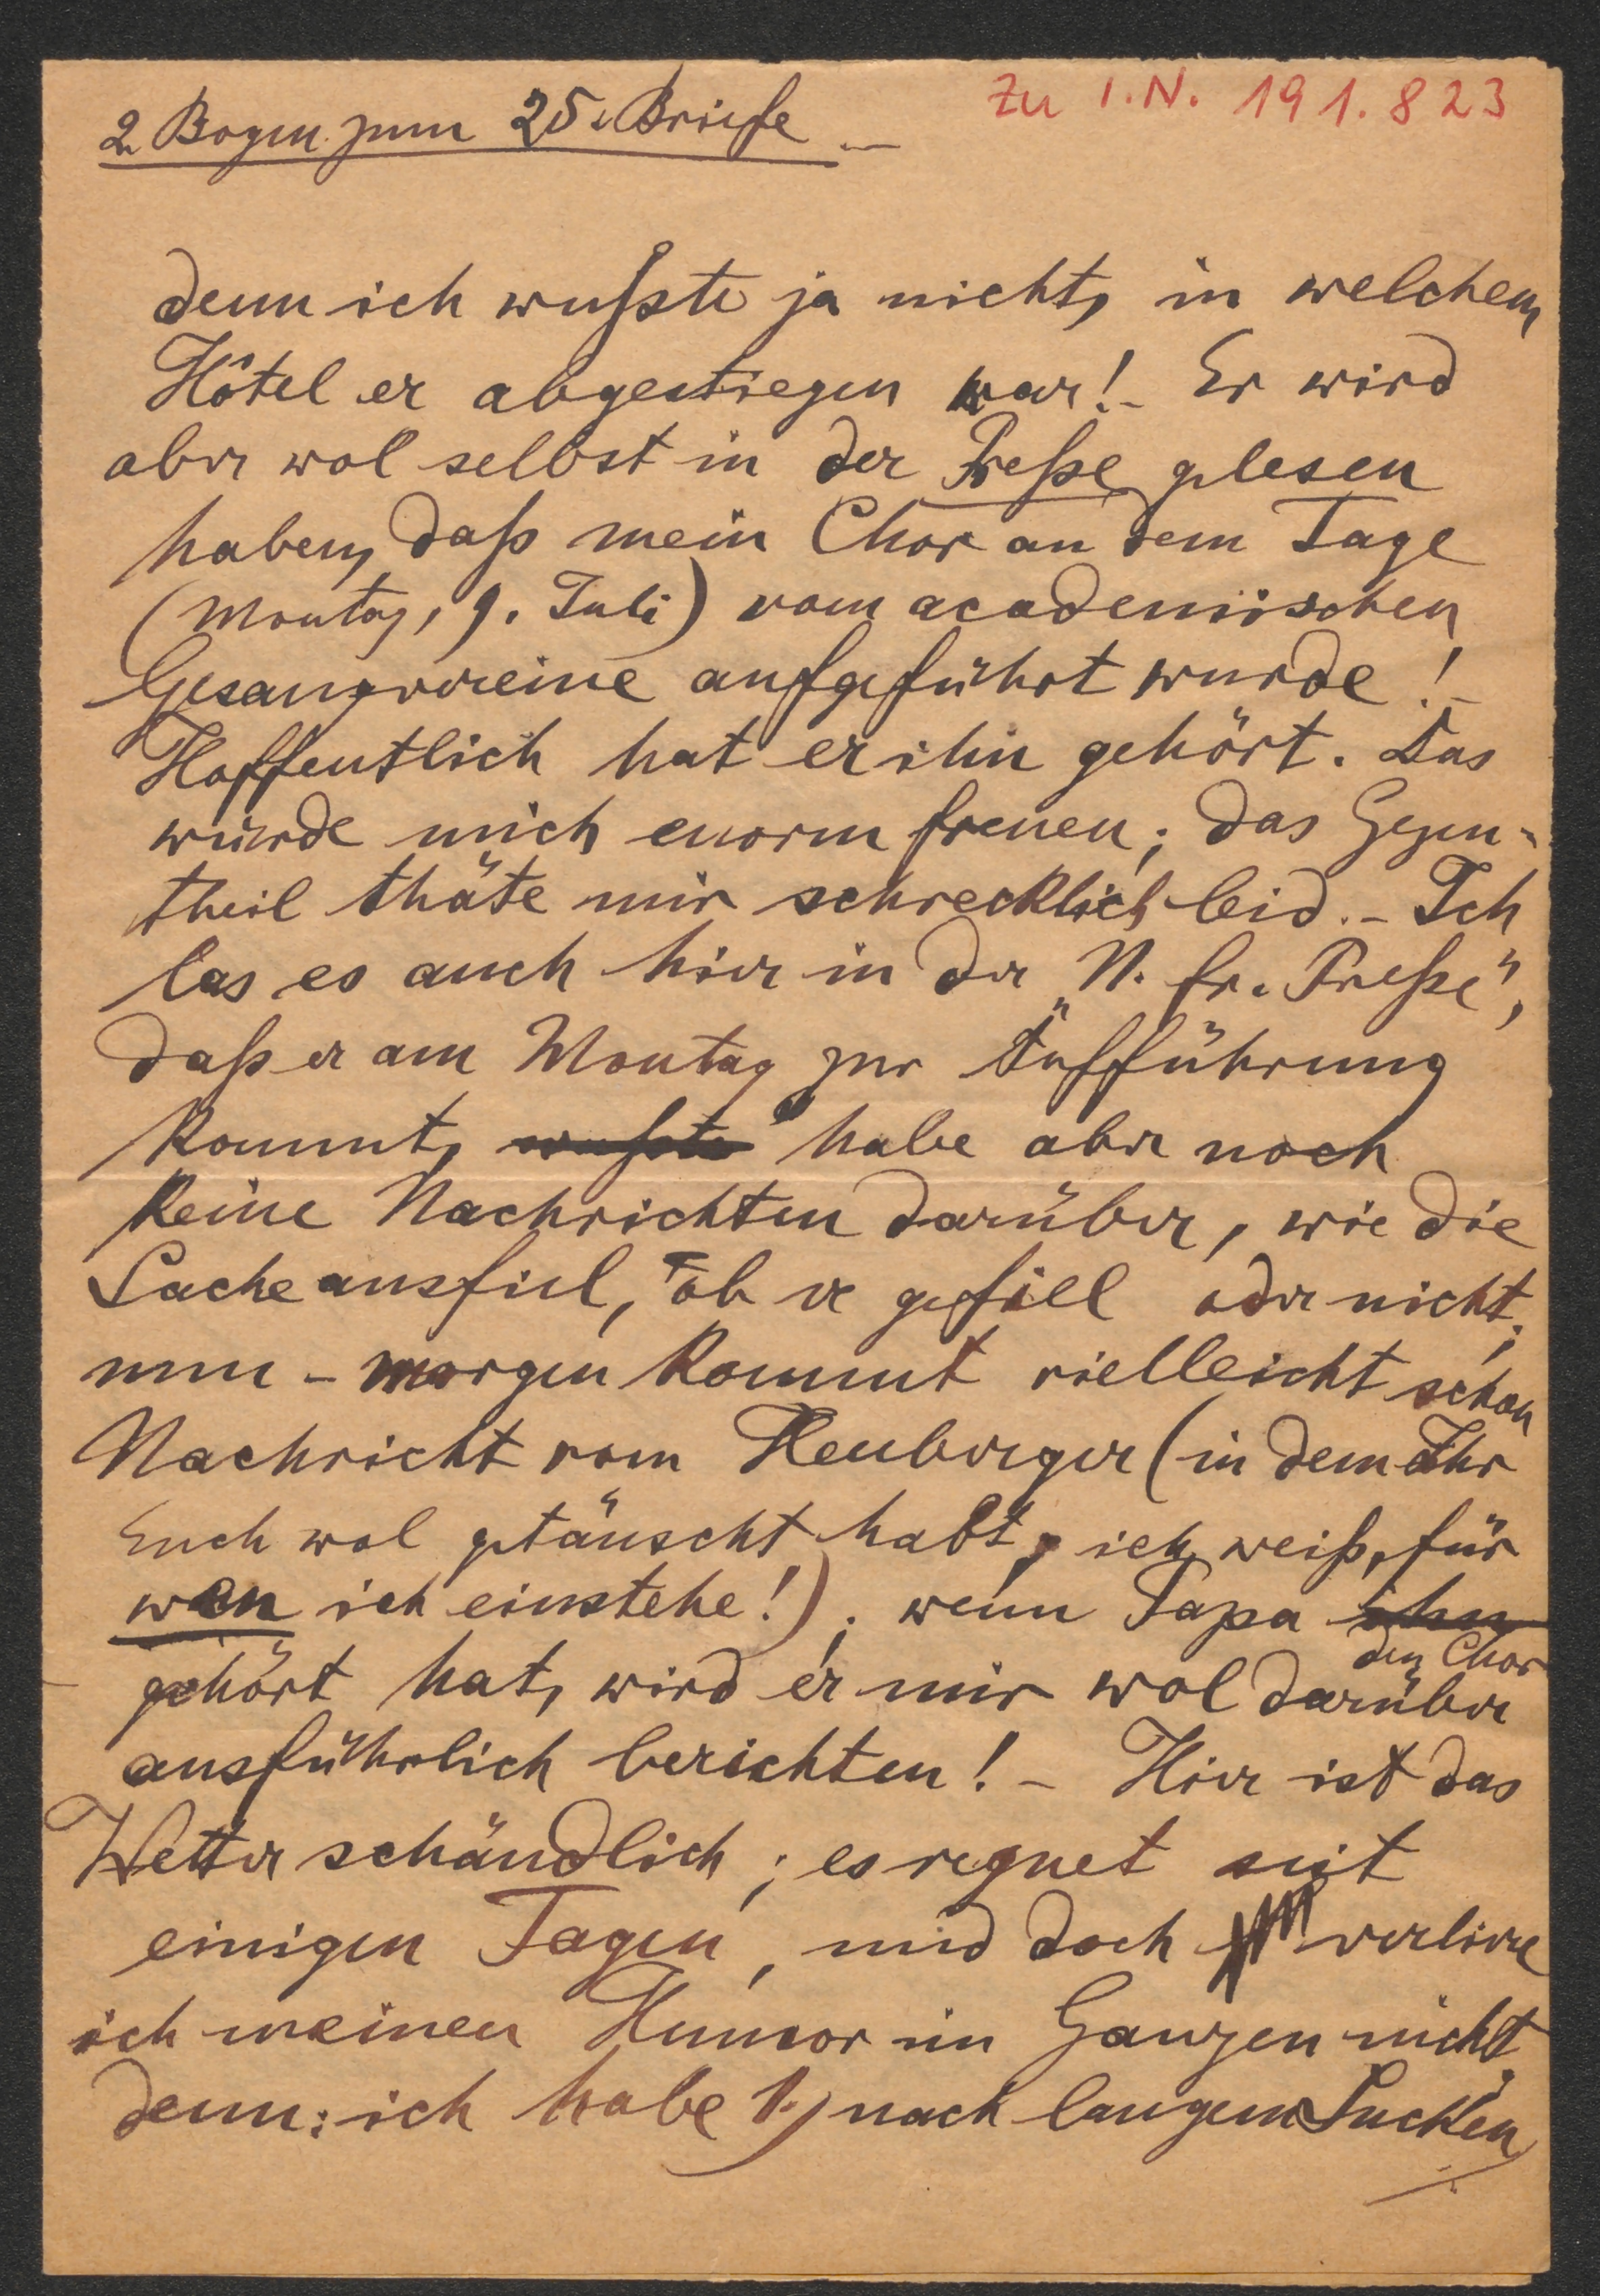 2 Bogen zum 25. Briefe
Zu I.N. 191.823
denn ich wußte ja nicht, in welchem
Hôtel er abgestiegen war! – Er wird
aber wol selbst in der Preße gelesen
haben, daß mein Chor an dem Tage
(Montag, 9. Juli) vom academischen
Gesangvereine aufgeführt wurde! –
Hoffentlich hat er ihn gehört. Das
würde mich enorm freuen; das Gegen-
theil thäte mir schrecklich leid. – Ich
las es auch hier in der „N. fr. Preße",
daß er am Montag zur Aufführung
kommt, wußte habe aber noch
keine Nachrichten darüber, wie die
Sache ausfiel, ob er gefiel oder nicht;
nun – morgen kommt vielleicht schon
Nachricht vom Heuberger (in dem Ihr
Euch wol getäuscht habt, ich weiß, für
wen ich einstehe!); wenn Papa ihn
den Chor
gehört hat, wird er mir wol darüber
ausführlich berichten! – Hier ist das
Wetter schändlich; es regnet seit
einigen Tagen, und doch verliere
ich meinen Humor im Ganzen nicht,
denn: ich habe 1.) nach langem Suchen